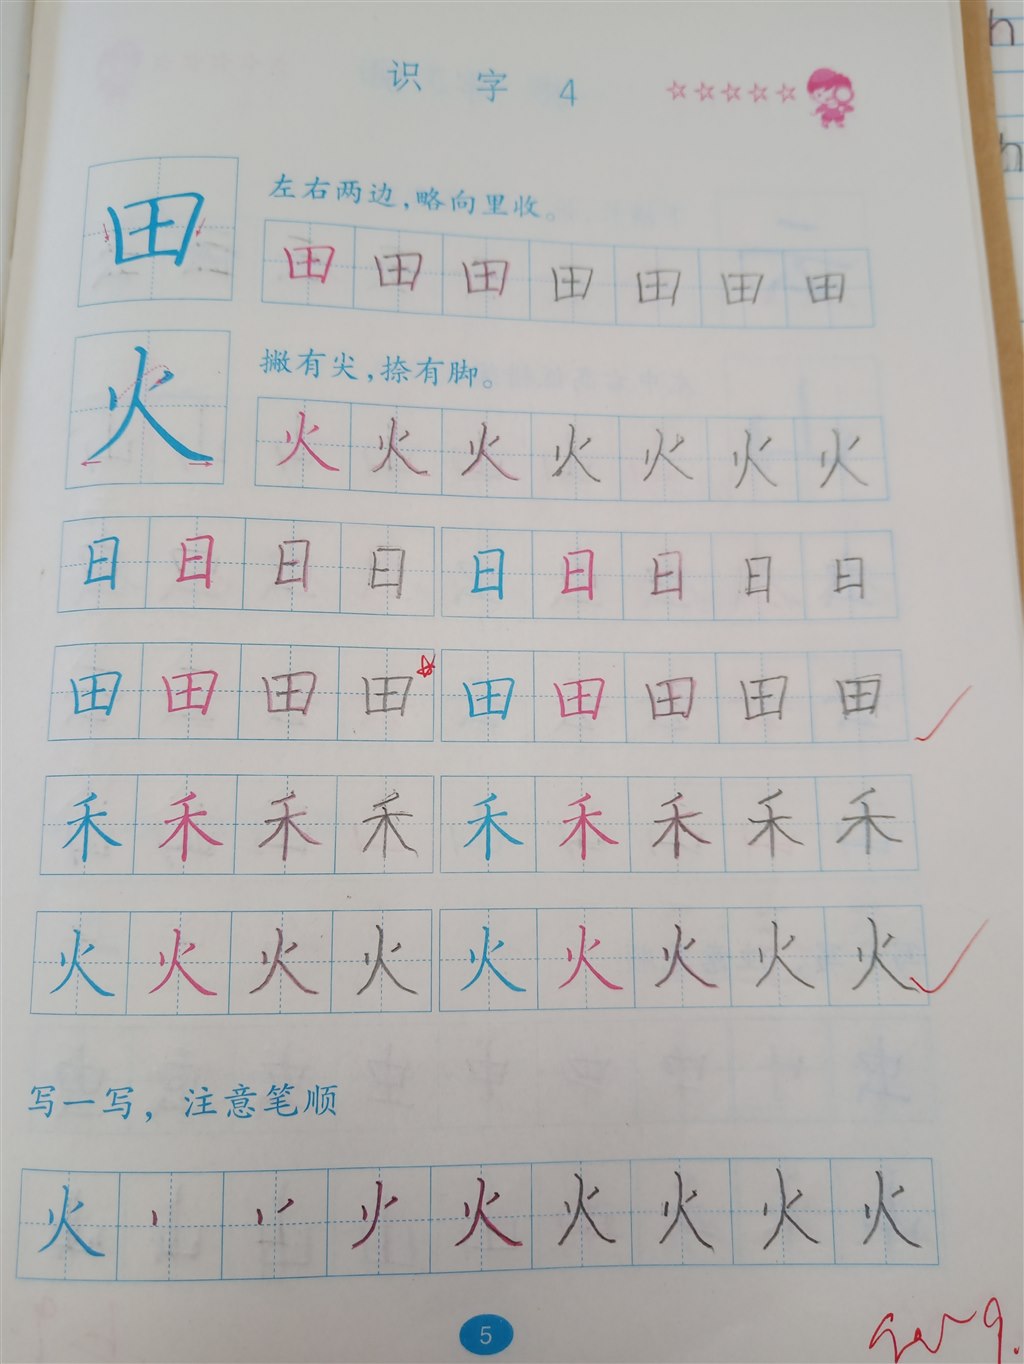 识 字 4
左右两边，略向里收。
田
田 田 田 田 田 田 田
撇有尖，捺有脚。
火
火 火 火 火 火 火 火
日 日 日 日 日 日 日 日 日
田 田 田 田 田 田 田 田 田
禾 禾 禾 禾 禾 禾 禾 禾 禾
火 火 火 火 火 火 火 火 火
写一写，注意笔顺
火 火 火 火 火 火
5